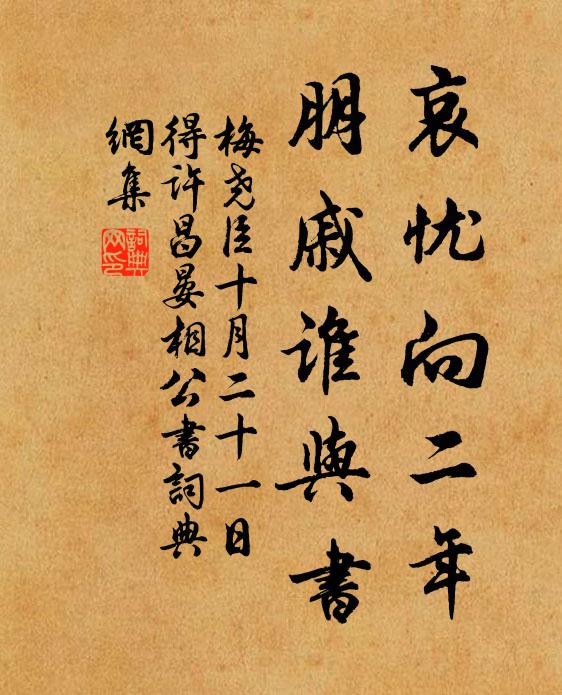 哀忧向二年
朋戚谁與書
梅尧臣十月二十一日
得许昌晏相公書詞典
網集
詞典網印